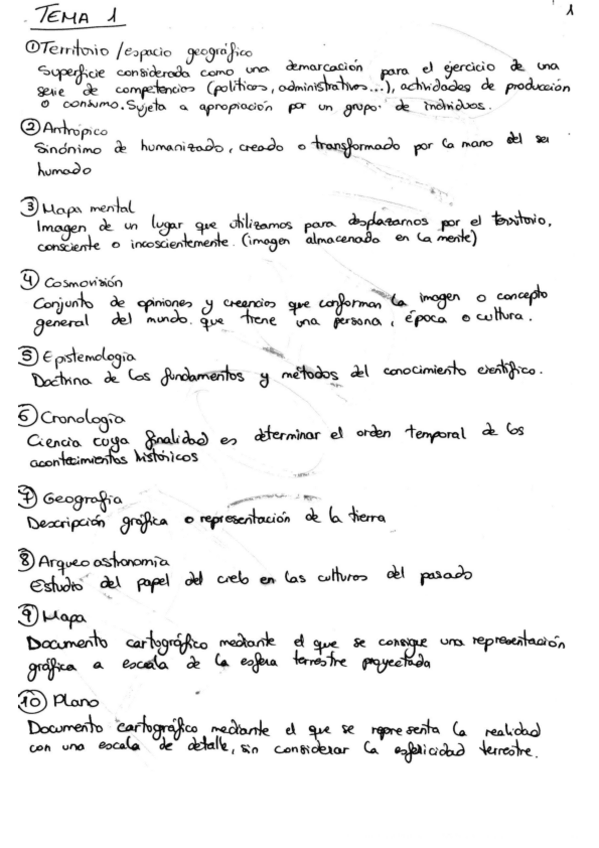 TEMA 1
1
① Territorio / espacio geográfico
Superficie considerada como una demarcación para el ejercicio de una
serie de competencias (políticas, administrativas...), actividades de producción
o consumo. Sujeta a apropiación por un grupo de individuos.
② Antrópico
Sinónimo de humanizado, creado o transformado por la mano del ser
humado
③ Mapa mental
Imagen de un lugar que utilizamos para desplazarnos por el territorio,
consciente o incoscientemente. (imagen almacenada en la mente)
④ Cosmovisión
Conjunto de opiniones y creencias que conforman la imagen o concepto
general del mundo. que tiene una persona, época o cultura.
⑤ Epistemología
Doctrina de los fundamentos y métodos del conocimiento científico.
⑥ Cronología
Ciencia cuya finalidad es determinar el orden temporal de los
acontecimientos históricos
⑦ Geografía
Descripción gráfica o representación de la tierra
⑧ Arqueoastronomía
Estudio del papel del cielo en las culturas del pasado
⑨ Mapa
Documento cartográfico mediante el que se consigue una representación
gráfica a escala de la esfera terrestre proyectada
⑩ Plano
Documento cartográfico mediante el que se representa la realidad
con una escala de detalle, sin considerar la esfericidad terrestre.